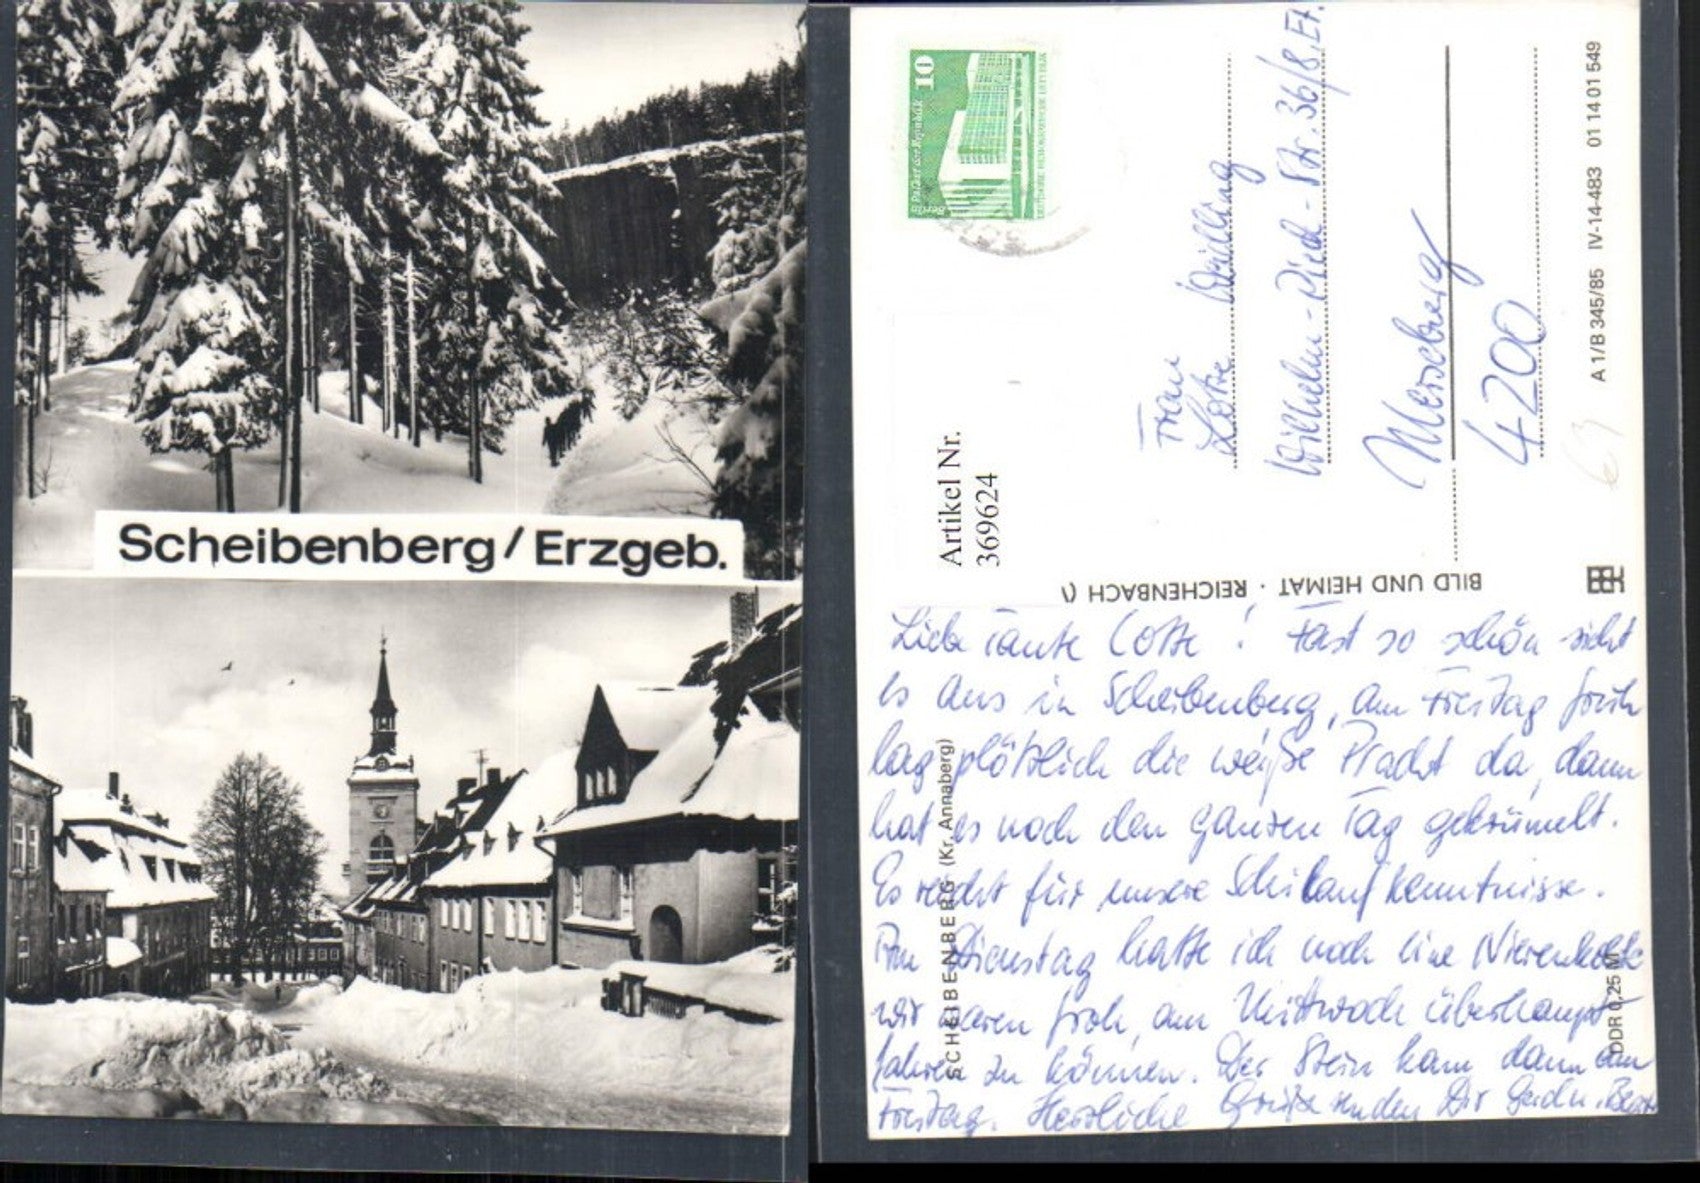 Scheibenberg/Erzgeb.
10
Berlin Palast der Republik
DEUTSCHE DEMOKRATISCHE REPUBLIK
Frau
Lotte Weidling
Wilhelm-Pieck-Str. 36/8.Et.
Merseburg
4200
Artikel Nr.
369624
BILD UND HEIMAT · REICHENBACH (V
A 1/B 345/85 IV-14-483 01 14 01 549
SCHEIBENBERG (Kr. Annaberg)
DDR 0,25 M
Liebe Tante Lotte! Fast so schön sieht
es aus in Scheibenberg, am Freitag früh
lag plötzlich die weiße Pracht da, dann
hat es noch den ganzen Tag gekrümelt.
Es reicht für unsere Schilaufkenntnisse.
Am Dienstag hatte ich noch eine Nierenkolik
wir waren froh, am Mittwoch überhaupt
fahren zu können. Der Stein kam dann am
Freitag. Herzliche Grüße senden Dir